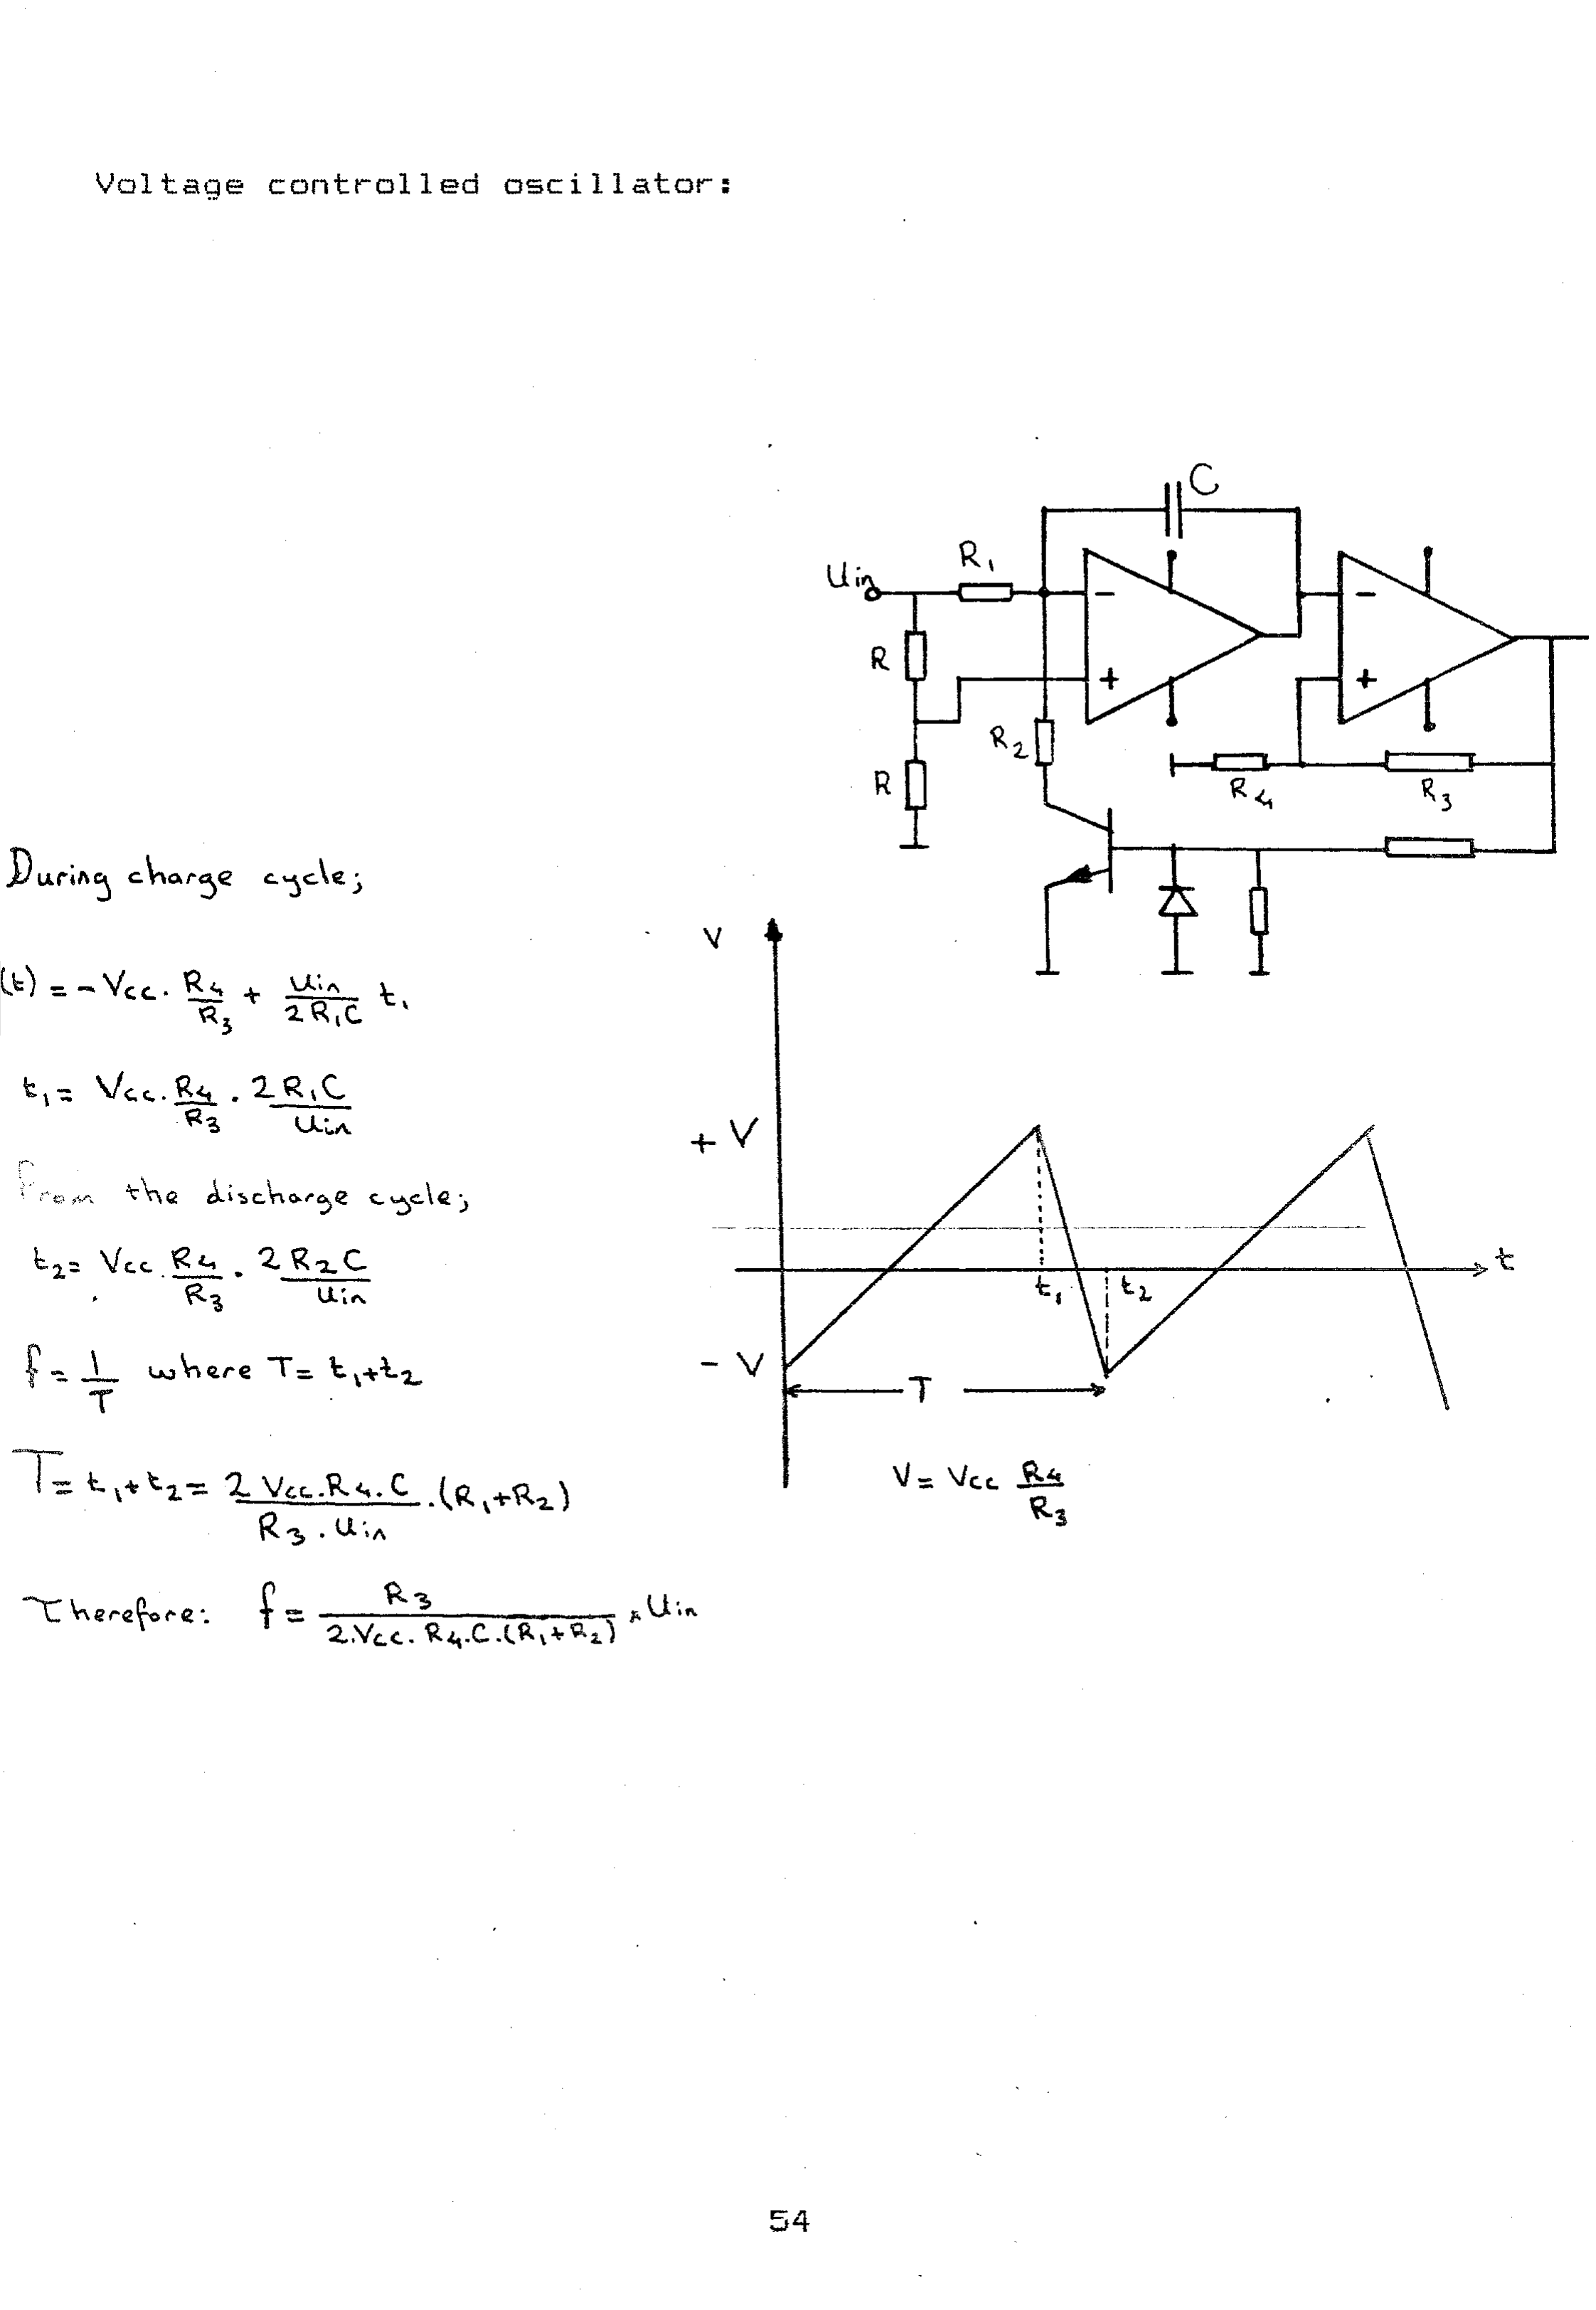 Voltage controlled oscillator:
C
Uin
R1
R
R
R2
R4
R3
During charge cycle;
(t) = - Vcc . R4/R3 + Uin/2R1C t1
t1 = Vcc . R4/R3 . 2R1C/Uin
From the discharge cycle;
t2 = Vcc . R4/R3 . 2R2C/Uin
f = 1/T where T = t1+t2
T = t1+t2 = 2 Vcc.R4.C/R3.Uin .(R1+R2)
Therefore: f = R3/2.Vcc.R4.C.(R1+R2) * Uin
V
+ V
- V
t1
t2
t
T
V = Vcc R4/R3
54